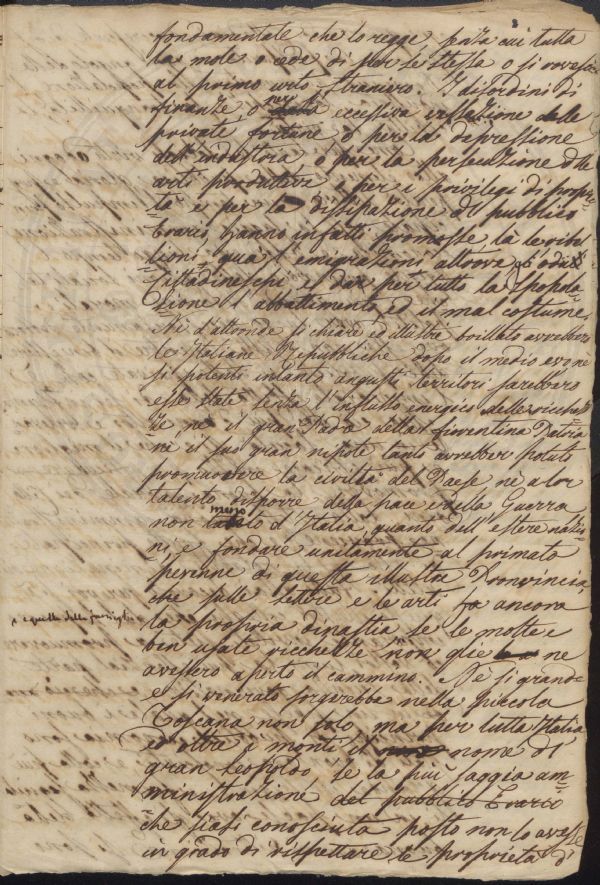 fondamentale che lo regge senza cui tutta
la mole o cede di per se stessa o si rovescia
al primo urto straniero. I disordini di
finanze o per eccessiva vessazione delle
private fortune o per la depressione
dell'industria, o per la persecuzione delle
arti produttive o per i privilegi di proprie=
tà e per la dissipazione del pubblico
Erario, hanno infatti promosse là le ribel=
lioni, quà l'emigrazioni, altrove gli odi
Cittadineschi, e dar per tutto la spopola=
zione l'abbattimento, ed il mal costume.
Nè d'altronde si chiare ed illustri brillato avrebbero
le Italiane Repubbliche dopo il medio evo nè
si potenti in tanto angusti territorj sarebbero
esse state senza l'influsso energico delle ricchez=
ze, nè il gran Padre della Fiorentina Patria
nè il suo gran nipote tanto avrebber potuto
promuovere la civiltà del Paese, nè a lor
talento disporre della pace e della Guerra
non meno d'Italia, quanto dell'estere nazio=
ni, e fondare unitamente al primato
perenne di questa illustre Provincia,
che sulle lettere e le arti ha ancora
la propria dinastia se le molte e
ben usate ricchezze non gliene
avessero aperto il cammino. Nè sì grande
e sì venerato sorgerebbe nella piccola
Toscana non solo, ma per tutta Italia
ed oltre i monti il nome del
gran Leopoldo, se la più saggia am=
ministrazione del pubblico Erario
che siasi conosciuta posto non lo avesse
in grado di rispettare le proprietà d
e quelle delle famiglie